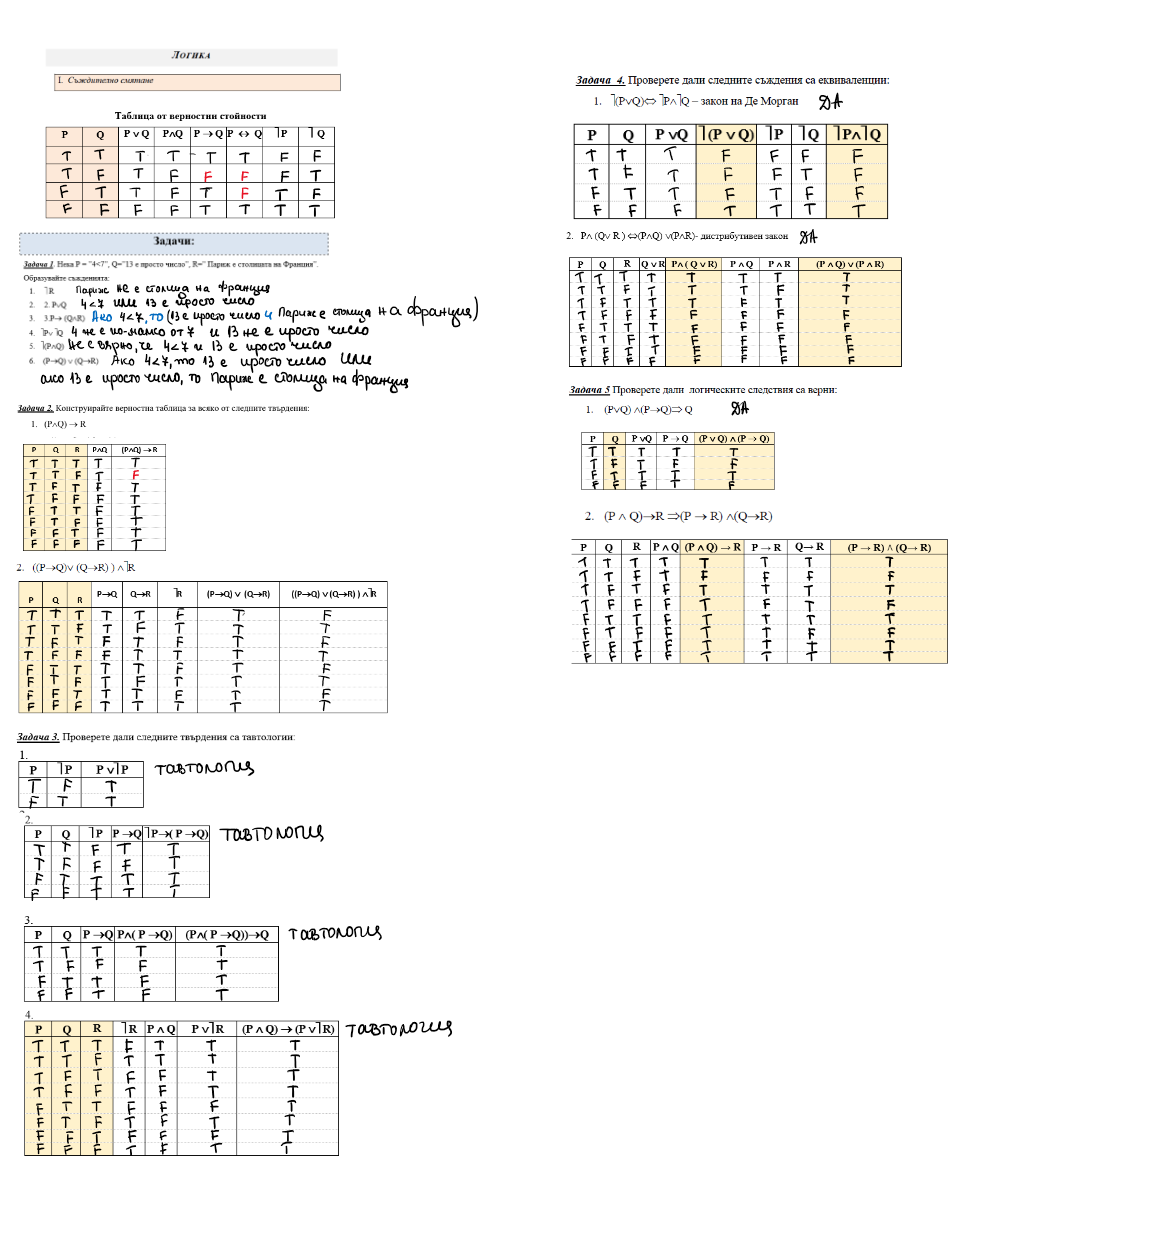 Логика
I. Съждително смятане
Таблица от верностни стойности
P Q P ∨ Q P∧Q P → Q P ↔ Q ⎤P ⎤Q
T T T T T T F F
T F T F F F F T
F T T F T F T F
F F F F T T T T
Задачи:
Задача 1. Нека P = "4<7", Q="13 е просто число", R=" Париж е столицата на Франция".
Образувайте съжденията:
1. ⎤R Париж не е столица на франция
2. 2. P∨Q 4<7 или 13 е просто число
3. 3.P→ (Q∧R) Ако 4<7, то (13 е просто число и Париж е столица на франция)
4. ⎤P∨⎤Q 4 не е по-малко от 7 и 13 не е просто число
5. ⎤(P∧Q) Не е вярно, че 4<7 и 13 е просто число
6. (P→Q) ∨ (Q→R) Ако 4<7, то 13 е просто число или
ако 13 е просто число, то Париж е столица на франция
Задача 2. Конструирайте верностна таблица за всяко от следните твърдения:
1. (P∧Q) → R
P Q R P∧Q (P∧Q) → R
T T T T T
T T F T F
T F T F T
T F F F T
F T T F T
F T F F T
F F T F T
F F F F T
2. ((P→Q)∨ (Q→R) ) ∧⎤R
P Q R P→Q Q→R ⎤R (P→Q) ∨ (Q→R) ((P→Q) ∨(Q→R) ) ∧⎤R
T T T T T F T F
T T F T F T T T
T F T F T F T F
T F F F T T T T
F T T T T F T F
F T F T F T T T
F F T T T F T F
F F F T T T T T
Задача 3. Проверете дали следните твърдения са тавтологии:
1.
P ⎤P P ∨⎤P тавтология
T F T
F T T
2.
P Q ⎤P P →Q ⎤P→( P →Q) тавтология
T T F T T
T F F F T
F T T T T
F F T T T
3.
P Q P →Q P∧( P →Q) (P∧( P →Q))→Q тавтология
T T T T T
T F F F T
F T T F T
F F T F T
4.
P Q R ⎤R P ∧ Q P ∨⎤R (P ∧ Q) → (P ∨⎤R) тавтология
T T T F T T T
T T F T T T T
T F T F F T T
T F F T F T T
F T T F F F T
F T F T F T T
F F T F F F T
F F F T F T T
Задача 4. Проверете дали следните съждения са еквиваленции:
1. ⎤(P∨Q)⇔ ⎤P∧⎤Q – закон на Де Морган ДА
P Q P ∨Q ⎤(P ∨ Q) ⎤P ⎤Q ⎤P∧⎤Q
T T T F F F F
T F T F F T F
F T T F T F F
F F F T T T T
2. P∧ (Q∨ R ) ⇔(P∧Q) ∨(P∧R)- дистрибутивен закон ДА
P Q R Q ∨ R P∧ ( Q ∨ R) P ∧ Q P ∧ R (P ∧ Q) ∨ (P ∧ R)
T T T T T T T T
T T F T T T F T
T F T T T F T T
T F F F F F F F
F T T T F F F F
F T F T F F F F
F F T T F F F F
F F F F F F F F
Задача 5 Проверете дали логическите следствия са верни:
1. (P∨Q) ∧(P→Q)⇒ Q ДА
P Q P ∨Q P → Q (P ∨ Q) ∧ (P → Q)
T T T T T
T F T F F
F T T T T
F F F T F
2. (P ∧ Q)→R ⇒(P → R) ∧(Q→R)
P Q R P ∧ Q (P ∧ Q) → R P → R Q→ R (P → R) ∧ (Q→ R)
T T T T T T T T
T T F T F F F F
T F T F T T T T
T F F F T F T F
F T T F T T T T
F T F F T T F F
F F T F T T T T
F F F F T T T T